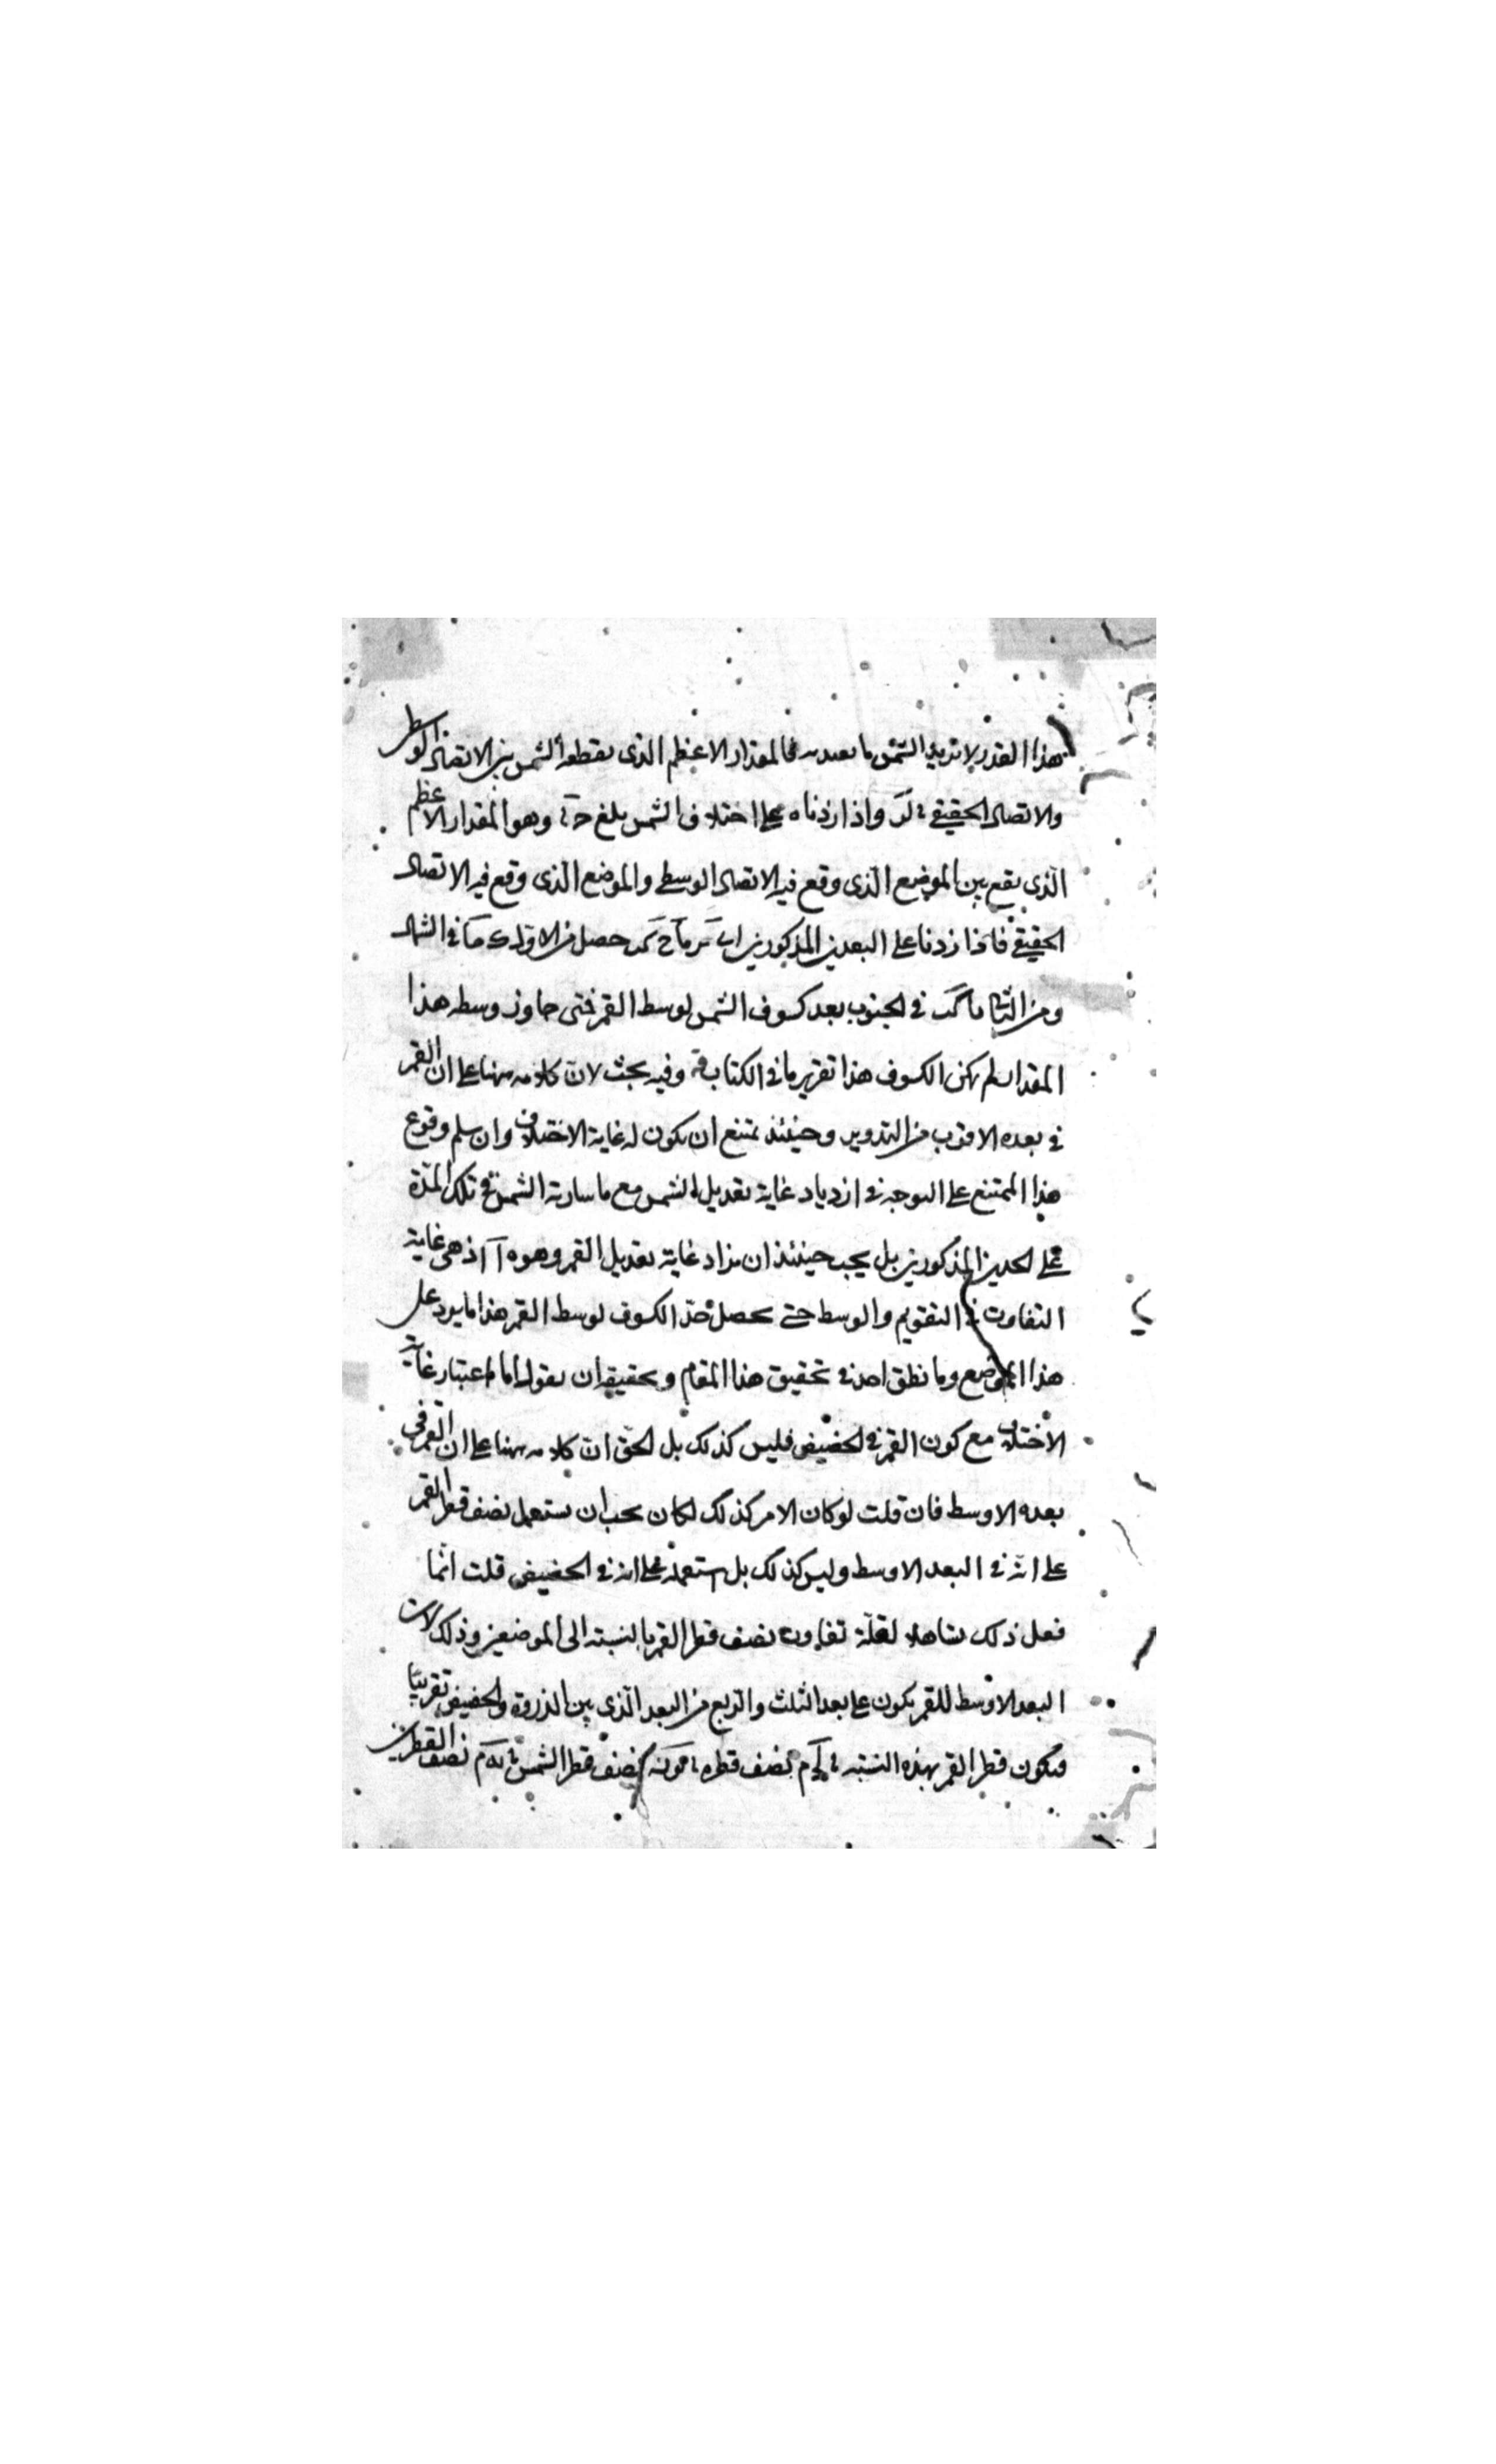 هذا القدر لا تزيد الشمس ما بعدبه فالمقدار الاعظم الذى يقطعه الشمس بين الاتصال الوسطى
والاتصال الحقيقى واذا زدناه على اختلاف الشمس بلغ وهو المقدار الاعظم
الذى يقع بين الموضع الذى وقع فيه الاتصال الوسطى والموضع الذى وقع فيه الاتصال
الحقيقى فاذا زدنا على البعدين المذكورين حصل من الاول فى الشمال
ومن الثانى فى الجنوب بعد كسوف الشمس لوسط القمر فمتى جاوز وسطه هذا
المقدار لم يكن الكسوف هذا تقرير ما فى الكتاب وفيه بحث لان كلامه ههنا على ان القمر
فى بعده الاقرب من التدوير وحينئذ يمتنع ان يكون له غاية الاختلاف وان سلم وقوع
هذا الممتنع على الوجه فى ازدياد غاية تعديل الشمس مع ما سارته الشمس فى تلك المدة
على الحدين المذكورين بل يجب حينئذ ان يزاد غاية تعديل القمر وهو ه آ اذ هى غاية
التفاوت فى التقويم والوسط حتى يحصل حد الكسوف لوسط القمر هذا ما يرد على
هذا الموضع وما نطق احد فى تحقيق هذا المقام وتحقيقه ان يقول اما اعتبار غاية
الاختلاف مع كون القمر فى الحضيض فليس كذلك بل الحق ان كلامه ههنا على ان القمر فى
بعده الاوسط فان قلت لو كان الامر كذلك لكان يجب ان يستعمل نصف قطر القمر
على انه فى البعد الاوسط وليس كذلك بل استعمله على انه فى الحضيض قلت انما
فعل ذلك تساهلا لقلة تفاوت نصف قطر القمر بالنسبة الى الموضعين وذلك لان
البعد الاوسط للقمر يكون على بعد الثلث والربع من البعد الذى بين الذروة والحضيض تقريبا
فيكون قطر القمر بهذه النسبة نصف قطره نصف قطر الشمس نصف القطرين